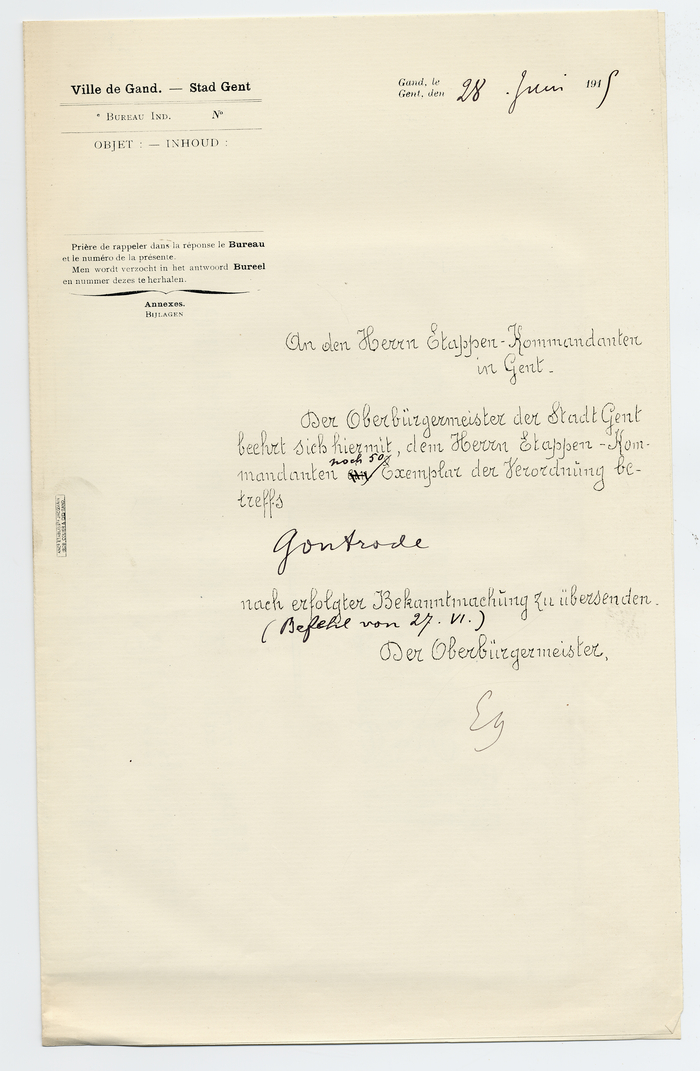 Ville de Gand. — Stad Gent
Gand, le
Gent, den 28 Juni 1915
* BUREAU IND. No
OBJET : — INHOUD :
Prière de rappeler dans la réponse le Bureau
et le numéro de la présente.
Men wordt verzocht in het antwoord Bureel
en nummer dezes te herhalen.
Annexes.
BIJLAGEN
An den Herrn Etappen-Kommandanten
in Gent.
Der Oberbürgermeister der Stadt Gent
beehrt sich hiermit, dem Herrn Etappen-Kom-
noch 50
mandanten Exemplar der Verordnung be-
treffs
Gontrode
nach erfolgter Bekanntmachung zu übersenden.
(Befehl von 27. VI.)
Der Oberbürgermeister,